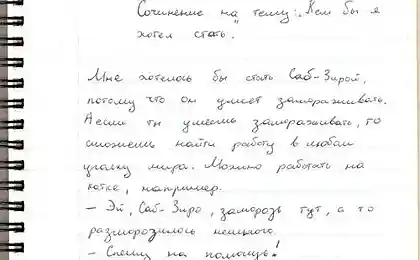 Сочинение на тему: „Кем бы я
хотел стать.
Мне хотелось бы стать Саб-Зирой,
потому что он умеет замораживать.
А если ты умеешь замораживать, то
сможешь найти работу в любом
уголку мира. Можно работать на
катке, например.
– Эй, Саб-Зиро, заморозь тут, а то
разморозилось немного.
– Спешу на помощь!